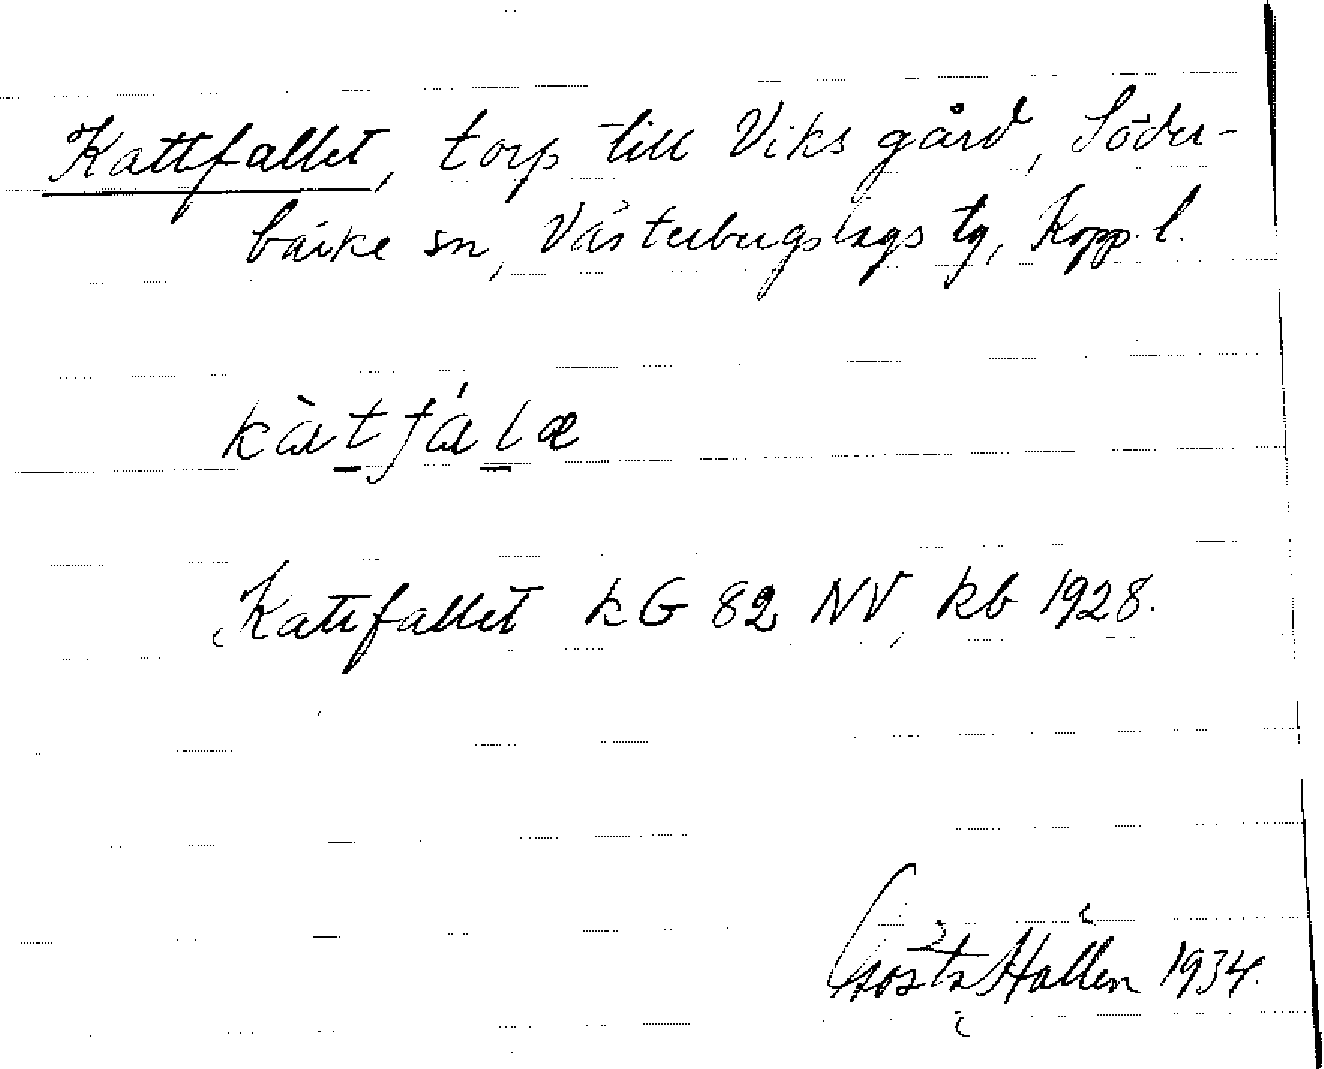 Kattfallet, torp till Viks gård, Söder-
bärke sn, Västerbergslags tg, Kopp. l.
kàtfálæ
Kattfallet kG 82 NV, kb 1928.
Gösta Hallén 1934.